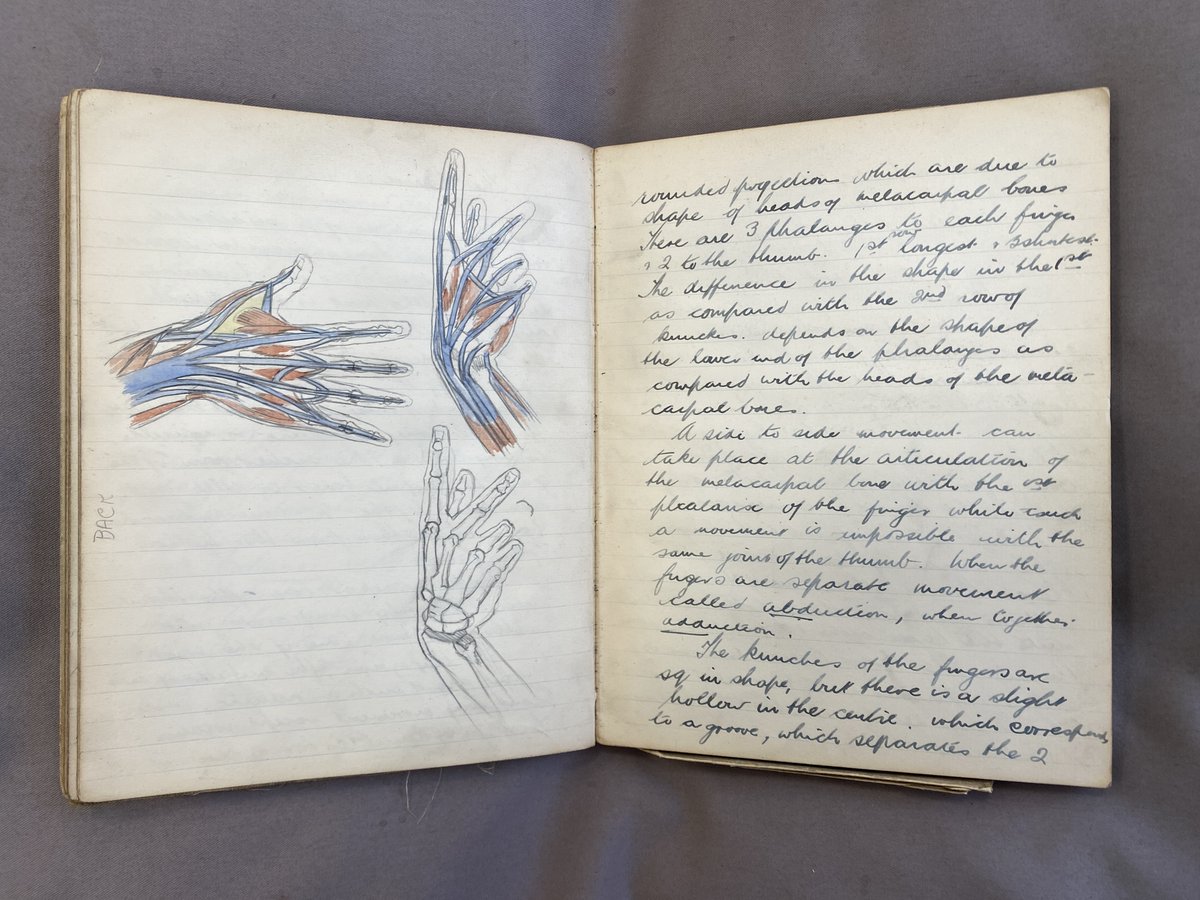 BACK
rounded projections which are due to
shape of heads of metacarpal bones
There are 3 phalanges to each finger
& 2 to the thumb. 1st longest & 3 shortest.
row
The difference in the shape in the 1st
as compared with the 2nd row of
knuckes. depends on the shape of
the lower end of the phalanges as
compared with the heads of the meta-
carpal bones.
A side to side movement can
take place at the articulation of
the metacarpal bone with the 1st
phalanx of the finger while such
a movement is impossible with the
same joint of the thumb. When the
fingers are separate movement
called abduction, when together
adduction.
The knuckles of the fingers are
sq in shape, but there is a slight
hollow in the centre. which corresponds
to a groove, which separates the 2